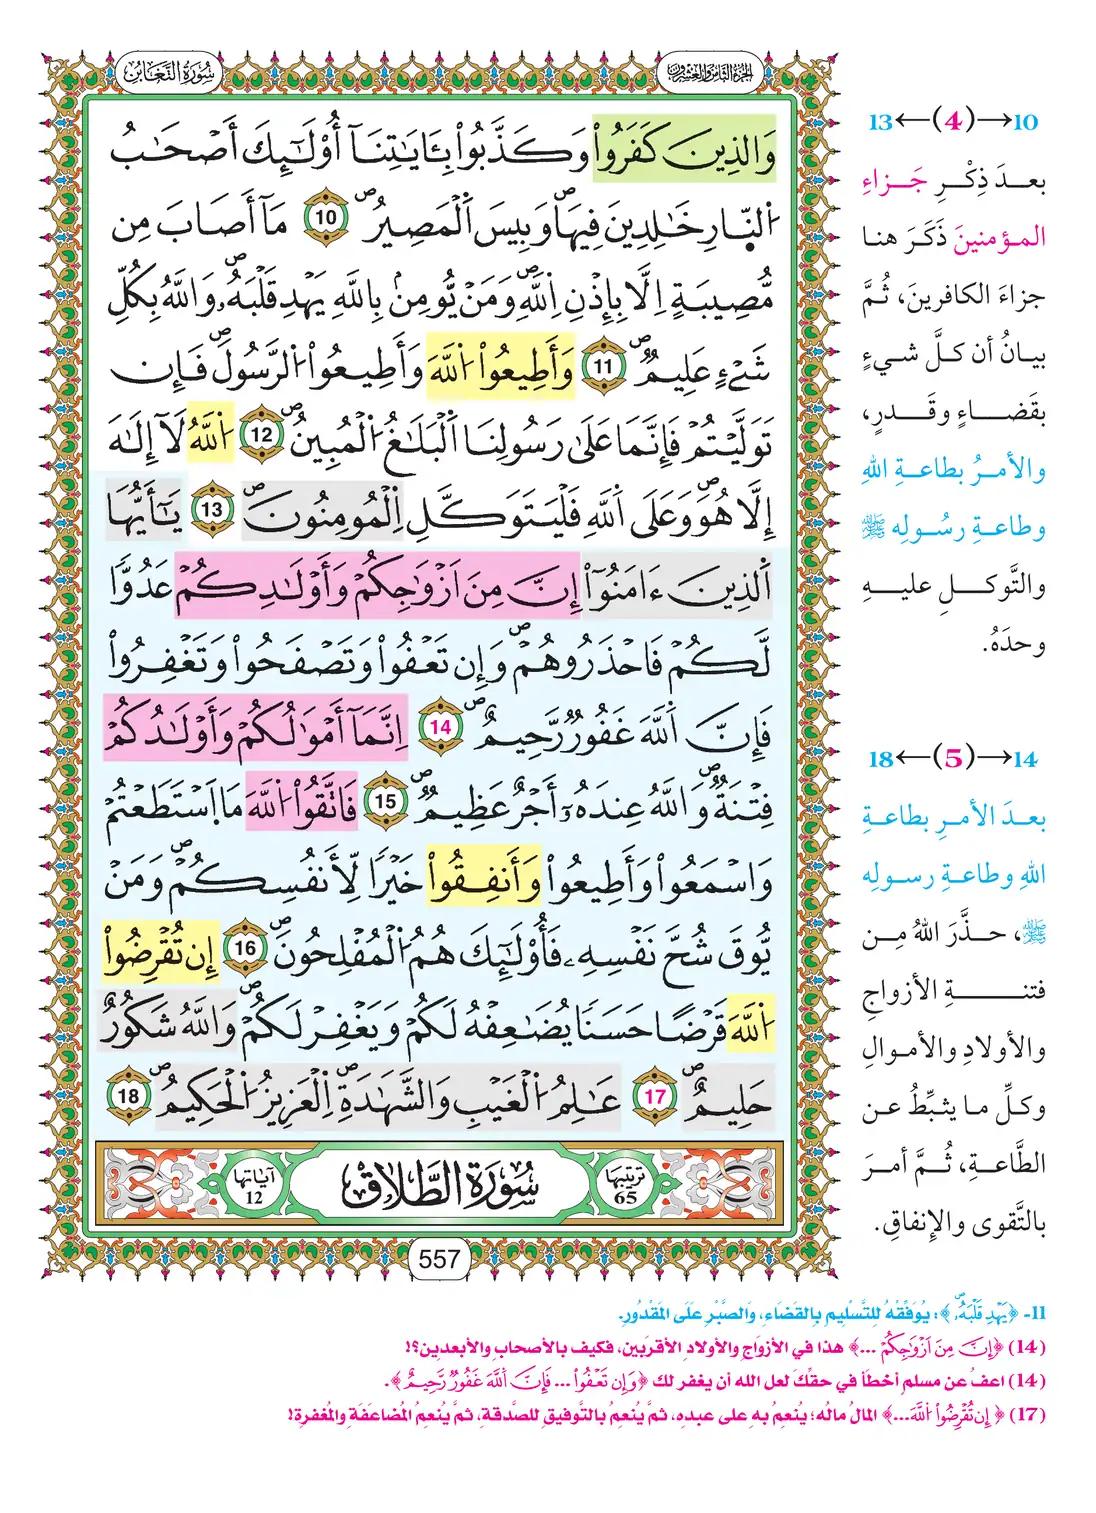 سُورَةُ التَّغَابُنِ
الجُزءُ الثَّامِنُ وَالعِشرُونَ
وَالذِينَ كَفَرُواْ وَكَذَّبُواْ بِـَٔايَٰتِنَآ أُوْلَٰٓئِكَ أَصْحَٰبُ
اُ۬لنّ۪ارِ خَٰلِدِينَ فِيهَاۖ وَبِيسَ اَ۬لْمَصِيرُۖ 10 مَآ أَصَابَ مِن
مُّصِيبَةٍ اِلَّا بِإِذْنِ اِ۬للَّهِۖ وَمَنْ يُّومِنۢ بِاللَّهِ يَهْدِ قَلْبَهُۥۖ وَاللَّهُ بِكُلِّ
شَےْءٍ عَلِيمٞۖ 11 وَأَطِيعُواْ اُ۬للَّهَ وَأَطِيعُواْ اُ۬لرَّسُولَۖ فَإِن
تَوَلَّيْتُمْ فَإِنَّمَا عَلَىٰ رَسُولِنَا اَ۬لْبَلَٰغُ اُ۬لْمُبِينُۖ 12 اُ۬للَّهُ لَآ إِلَٰهَ
إِلَّا هُوَۖ وَعَلَى اَ۬للَّهِ فَلْيَتَوَكَّلِ اِ۬لْمُومِنُونَۖ 13 يَٰٓأَيُّهَا
اَ۬لَّذِينَ ءَامَنُوٓاْ إِنَّ مِنَ اَزْوَٰجِكُمْ وَأَوْلَٰدِكُمْ عَدُوّٗا
لَّكُمْ فَاحْذَرُوهُمْۖ وَإِن تَعْفُواْ وَتَصْفَحُواْ وَتَغْفِرُواْ
فَإِنَّ اَ۬للَّهَ غَفُورٞ رَّحِيمٌۖ 14 اِنَّمَآ أَمْوَٰلُكُمْ وَأَوْلَٰدُكُمْ
فِتْنَةٞۖ وَاللَّهُ عِندَهُۥٓ أَجْرٌ عَظِيمٞۖ 15 فَاتَّقُواْ اُ۬للَّهَ مَا اَ۪سْتَطَعْتُمْ
وَاسْمَعُواْ وَأَطِيعُواْ وَأَنفِقُواْ خَيْراٗ لِّأَنفُسِكُمْۖ وَمَنْ
يُّوقَ شُحَّ نَفْسِهِۦ فَأُوْلَٰٓئِكَ هُمُ اُ۬لْمُفْلِحُونَۖ 16 إِن تُقْرِضُواْ
اُ۬للَّهَ قَرْضًا حَسَنٗا يُضَٰعِفْهُ لَكُمْ وَيَغْفِرْ لَكُمْۖ وَاللَّهُ شَكُورٌ
حَلِيمٌۖ 17 عَٰلِمُ اُ۬لْغَيْبِ وَالشَّهَٰدَةِۖ اِ۬لْعَزِيزُ اُ۬لْحَكِيمُۖ 18
ترتيبها 65
سُورَةُ الطَّلَاقِ
آياتها 12
557
10→(4)←13
بعدَ ذِكْرِ جَزاءِ
المؤمنينَ ذَكَرَ هنا
جزاءَ الكافرينَ، ثُمَّ
بيانُ أن كلَّ شيءٍ
بقَضاءٍ وقَدرٍ،
والأمرُ بطاعةِ اللهِ
وطاعةِ رسُولِه ﷺ
والتَّوكلِ عليهِ
وحدَهُ.
14→(5)←18
بعدَ الأمرِ بطاعةِ
اللهِ وطاعةِ رسولِه
ﷺ، حذَّرَ اللهُ مِن
فتنةِ الأزواجِ
والأولادِ والأموالِ
وكلِّ ما يثبِّطُ عن
الطَّاعةِ، ثُمَّ أمرَ
بالتَّقوى والإنفاقِ.
11- ﴿يَهْدِ قَلْبَهُۥۖ﴾: يُوَفِّقْهُ للتَّسْلِيمِ بِالقَضَاءِ، وَالصَّبْرِ عَلَى المَقْدُورِ.
(14) ﴿إِنَّ مِنَ اَزْوَٰجِكُمْ ...﴾ هذا في الأزواج والأولاد الأقربين، فكيف بالأصحاب والأبعدين؟!
(14) اعفُ عن مسلمٍ أخطأ في حقِّكَ لعل الله أن يغفر لك ﴿وَإِن تَعْفُواْ ... فَإِنَّ اَ۬للَّهَ غَفُورٞ رَّحِيمٌ﴾.
(17) ﴿إِن تُقْرِضُواْ اُ۬للَّهَ...﴾ المالُ مالُه؛ يُنعِمُ بهِ على عبدِه، ثمَّ يُنعِمُ بالتَّوفيقِ للصَّدقةِ، ثمَّ يُنعِمُ المُضاعَفَةِ والمُغفرةِ!